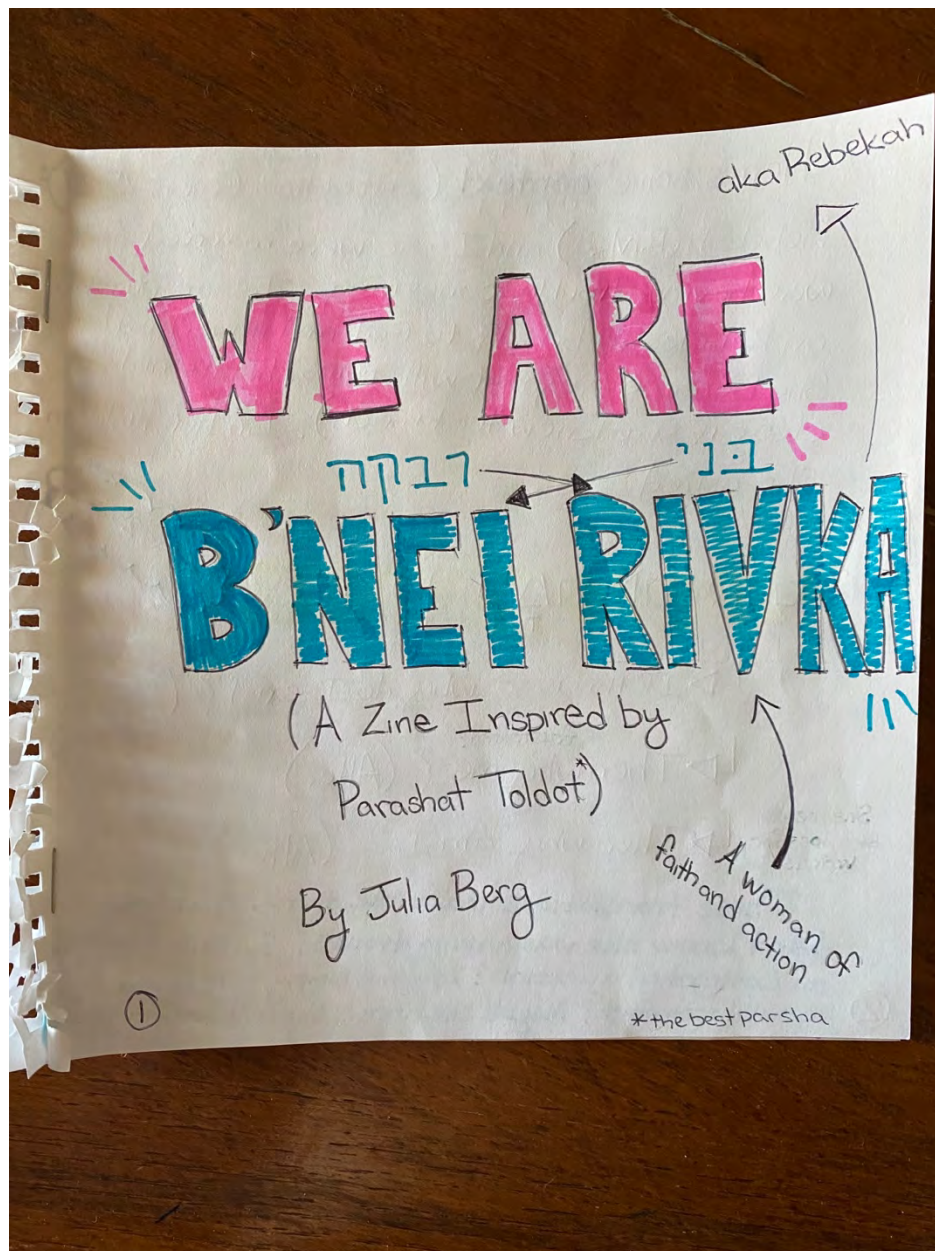 aka Rebekah
WE ARE
רבקה בני
B'NEI RIVKA
(A Zine Inspired by
Parashat Toldot*)
By Julia Berg
A woman of
faith and action
1
*the best parsha